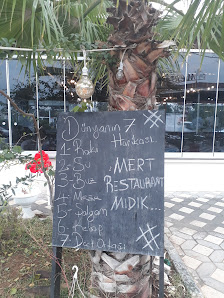 Dünyanın 7
Harikası
1. Rakı
2. Su
3. Buz
4. Meze
5. Şalgam
6. Kebap
7. Dert Ortağı
MERT
RESTAURANT
MIDIK...
#
#